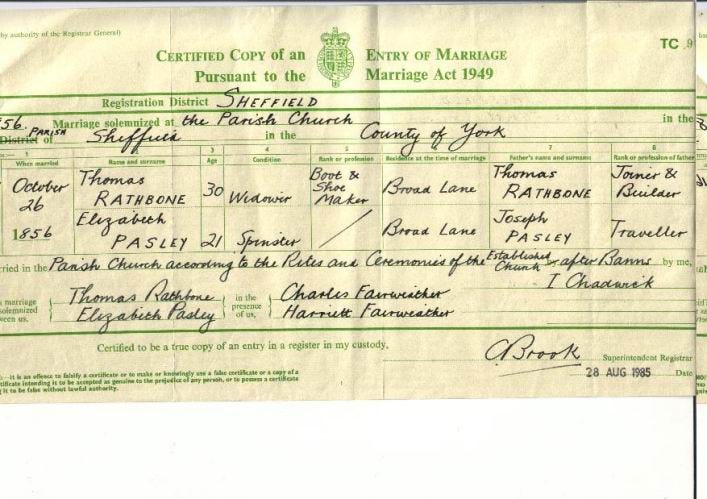 by authority of the Registrar General)
CERTIFIED COPY of an ENTRY OF MARRIAGE
Pursuant to the Marriage Act 1949
TC 9
Registration District SHEFFIELD
56. Marriage solemnized at the Parish Church in the
District of PARISH Sheffield in the County of York
When married
2
Name and surname
3
Age
4
Condition
5
Rank or profession
6
Residence at the time of marriage
7
Father's name and surname
8
Rank or profession of father
October 26 1856
Thomas RATHBONE
30
Widower
Boot & Shoe Maker
Broad Lane
Thomas RATHBONE
Joiner & Builder
Elizabeth PASLEY
21
Spinster
/
Broad Lane
Joseph PASLEY
Traveller
ried in the Parish Church according to the Rites and Ceremonies of the Established Church or after Banns by me,
I Chadwick
marriage solemnized een us,
Thomas Rathbone
Elizabeth Pasley
in the presence of us,
Charles Fairweather
Harriett Fairweather
Certified to be a true copy of an entry in a register in my custody,
C Brook Superintendent Registrar
28 AUG 1985 Date
:—It is an offence to falsify a certificate or to make or knowingly use a false certificate or a copy of a
tificate intending it to be accepted as genuine to the prejudice of any person, or to possess a certificate
g it to be false without lawful authority.